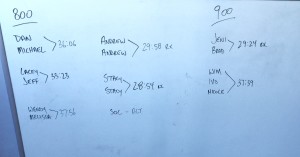 800
DAN
MICHAEL
36:06
ANDREW
ANDREW
29:58 RX
LACEY
JEFF
33:23
STACY
STACY
28:54 RX
WENDY
MELISSA
37:56
900
JENI
BRAD
29:24 RX
KIM
IVO
37:39